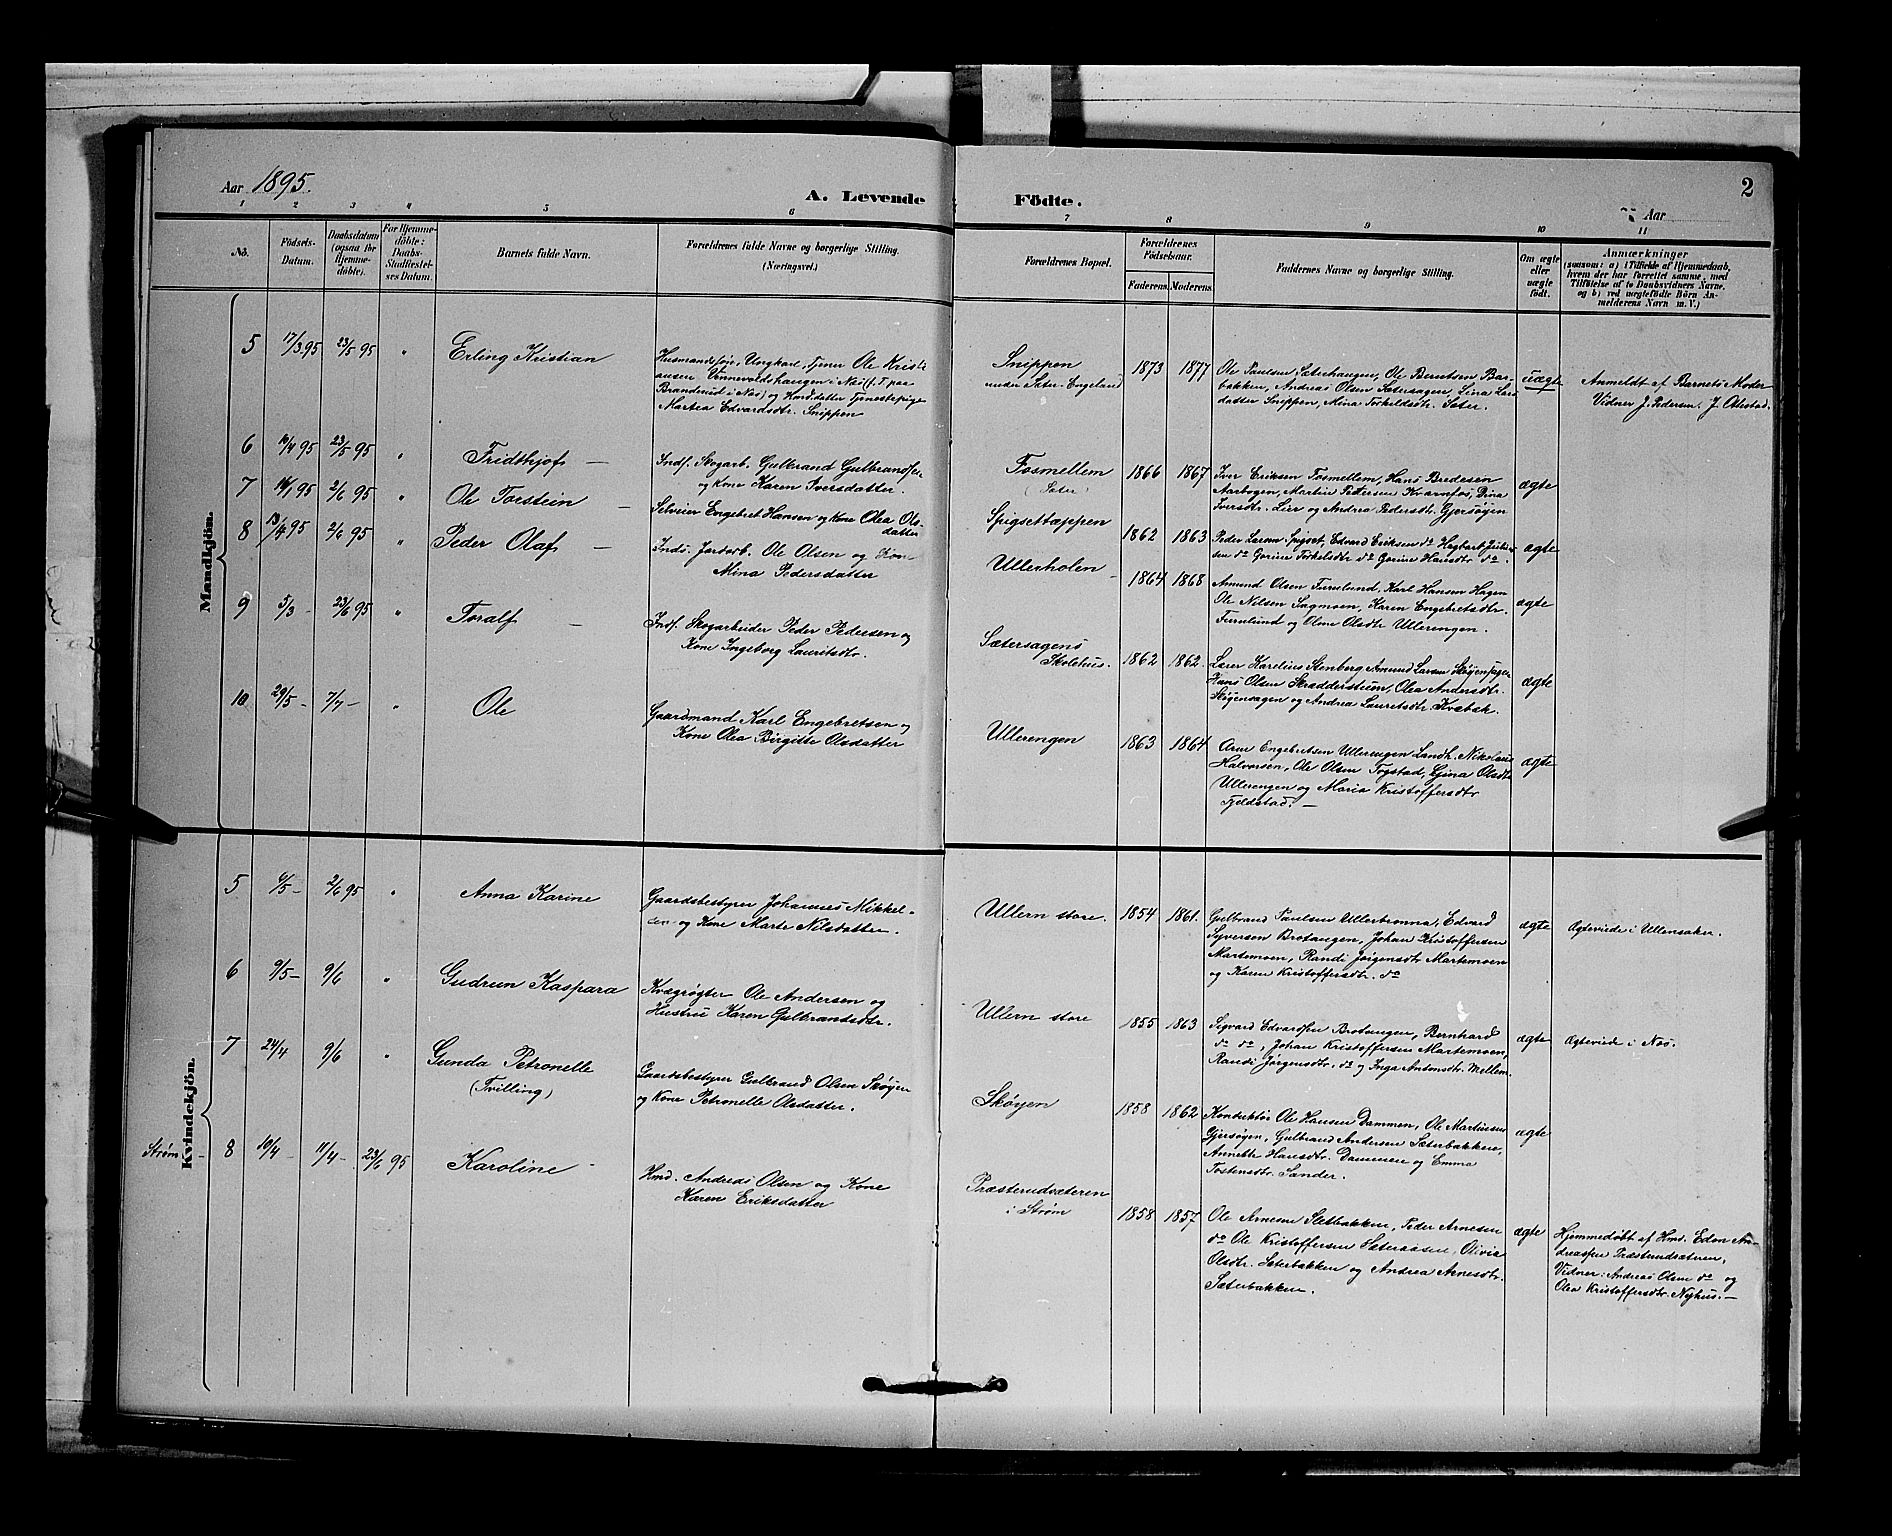 Aar 1895.
A. Levende Födte.
2
Aar
1 2 3 4 5 6 7 8 9 10 11
No.
Födsels-Datum.
Daabsdatum (ogsaa for Hjemme-døbte).
For Hjemme-døbte: Daabs-Stadfæstel-ses Datum.
Barnets fulde Navn.
Forældrenes fulde Navne og borgerlige Stilling. (Næringsvei.)
Forældrenes Bopæl.
Forældrenes Födselsaar.
Faderens. Moderens.
Faddernes Navne og borgerlige Stilling.
Om ægte eller uægte födt.
Anmærkninger
(saasom: a) i Tilfælde af Hjemmedaab, hvem der har forrettet samme, med Tilföielse af to Daabsvidners Navne, og b) ved uægtefödte Börn An-melderens Navn m. V.)
Mandkjön.
5 17/3 95 23/5 95 " Erling Kristian
Husmandssøn, Ungkarl, Tjener Ole Kristi
ansen Vonnevoldshaugen i Nes (f. T. paa
Brandnud i Nes) og Husmdatter Tjenestepige
Martea Edvardsdtr. Snippen
Snippen
under Sæter-Engeland
1873 1877
Ole Paulsen Sæterhaugen, Ole Berntsen Bar-
bakken, Andreas Olsen Sætersagen, Lina Lars
datter Snippen, Mina Torkeldsdtr. Sæter.
uægte
Anmeldt af Barnets Moder
Vidner J. Pedersen. J. Olestad.
6 10/4 95 23/5 95 " Fridthjof —
Inds. Skogarb. Gulbrand Gulbrandsen
og Kone Karen Iversdatter.
Fosmellem
(Sæter)
1866 1867
Iver Eriksen Fosmellem, Hans Bredesen
Aarbogen, Martin Pettersen Kvarnfos, Dina
Iversdtr. Lier og Andrea Pedersdtr. Gjersøyen
ægte
7 14/1 95 2/6 95 " Ole Torstein —
Selveier Engebret Hansen og Kone Olea Ols-
datter
Spigsettæppen
1862 1863
Peder Larsen Spigset, Edvard Eriksen do Hegbart Julius-
sen do Gorine Torkelsdtr do Gorine Hansdtr. do.
ægte
8 13/4 95 2/6 95 " Peder Olaf —
Inds. Jordarb. Ole Olsen og Kone
Mina Pedersdatter
Ullerholen
1864 1868
Amund Olsen Furulund, Karl Hansen Hagen
Ole Nilsen Sagmoen, Karen Engebretsdtr.
Furulund og Olme Olsdtr Ullerengen.
ægte
9 5/3 - 23/6 95 " Toralf —
Inds. Skogarbeider Peder Pedersen og
Kone Ingeborg Lauritsdtr.
Sætersagens
Skolehus.
1862 1862.
Lærer Karelius Stenberg Amund Larsen Skøyensagen
Hans Olsen Skræddersteen, Olea Andersdtr.
Skøyensagen og Andrea Lauritsdtr. Kvæbæk.
ægte
10 29/5 - 7/7 - " Ole
Gaardmand Karl Engebretsen og
Kone Olea Birgitte Olsdatter
Ullerengen
1863 1864
Arne Engebretsen Ullerengen Landh. Nikolaus
Halvorsen, Ole Olsen Fogstad, Gina Olsdtr
Ullerengen og Maria Kristoffersdtr
Fjeldstad. —
ægte
Kvindekjön.
5 6/5 - 2/6 95 " Anna Karine
Gaardsbestyrer Johannes Mikkel-
sen og Kone Marte Nilsdatter.
Ullern store.
1854 1861.
Gulbrand Paulsen Ullerbrønna, Edvard
Syversen Brotangen, Johan Kristoffersen
Martemoen, Randi Jørgensdtr Martemoen
og Karen Kristoffersdtr. do
ægte
Ægteviede i Ullensaker.
6 9/5 - 9/6 " Gudrun Kaspara
Kvægrøgter Ole Andersen og
Hustru Karen Gulbrandsdtr.
Ullern store
1855 1863
Sigvard Edvardsen Brotangen, Bernhard
do do, Johan Kristoffersen Martemoen,
Randi Jørgensdtr. do og Inga Antonsdtr. Mellem.
ægte
Ægteviede i Nes.
7 24/4 9/6 " Gunda Petronelle
(Tvilling)
Gaardsbestyrer Gulbrand Olsen Skøyen
og Kone Petronelle Olsdatter.
Skøyen
1858 1862
Konduktør Ole Hansen Dammen, Ole Martinsen
Gjersøyen, Gulbrand Andersen Sæterbakken,
Annette Hansdtr. Dammen og Emma
Tostensdtr. Sander.
ægte
Strøm - 8 10/4 - 11/4 - 23/6 95 Karoline -
Hmd. Andreas Olsen og Kone
Karen Eriksdatter
Præsterudsæteren
i Strøm
1858 1857.
Ole Arnesen Sletbakken, Peder Arnesen
do Ole Kristoffersen Sæteraasen, Olivia
Olsdtr. Sæterbakken og Andrea Arnesdtr.
Sæterbakken.
ægte
Hjemmedøbt af Hms. Edon An-
dreassen Præsterudsæteren,
Vidner: Andreas Olsen do og
Olea Kristoffersdtr. Nyhus. —